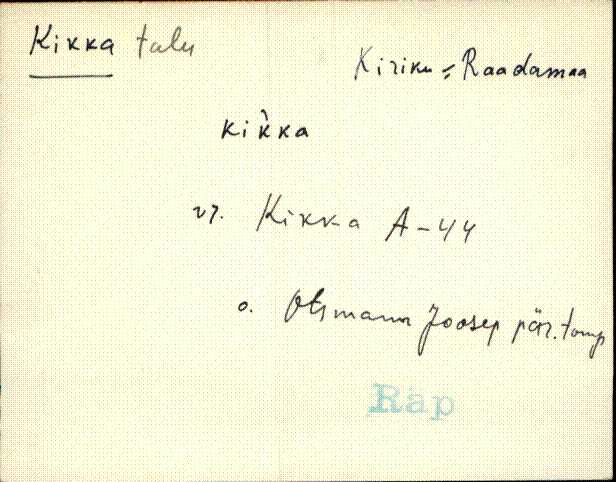 Kikka talu
Kiriku = Raadamaa
kik̀ka
vr. Kikka A-44
o. Otsmann Joosep pär. tomp
Räp